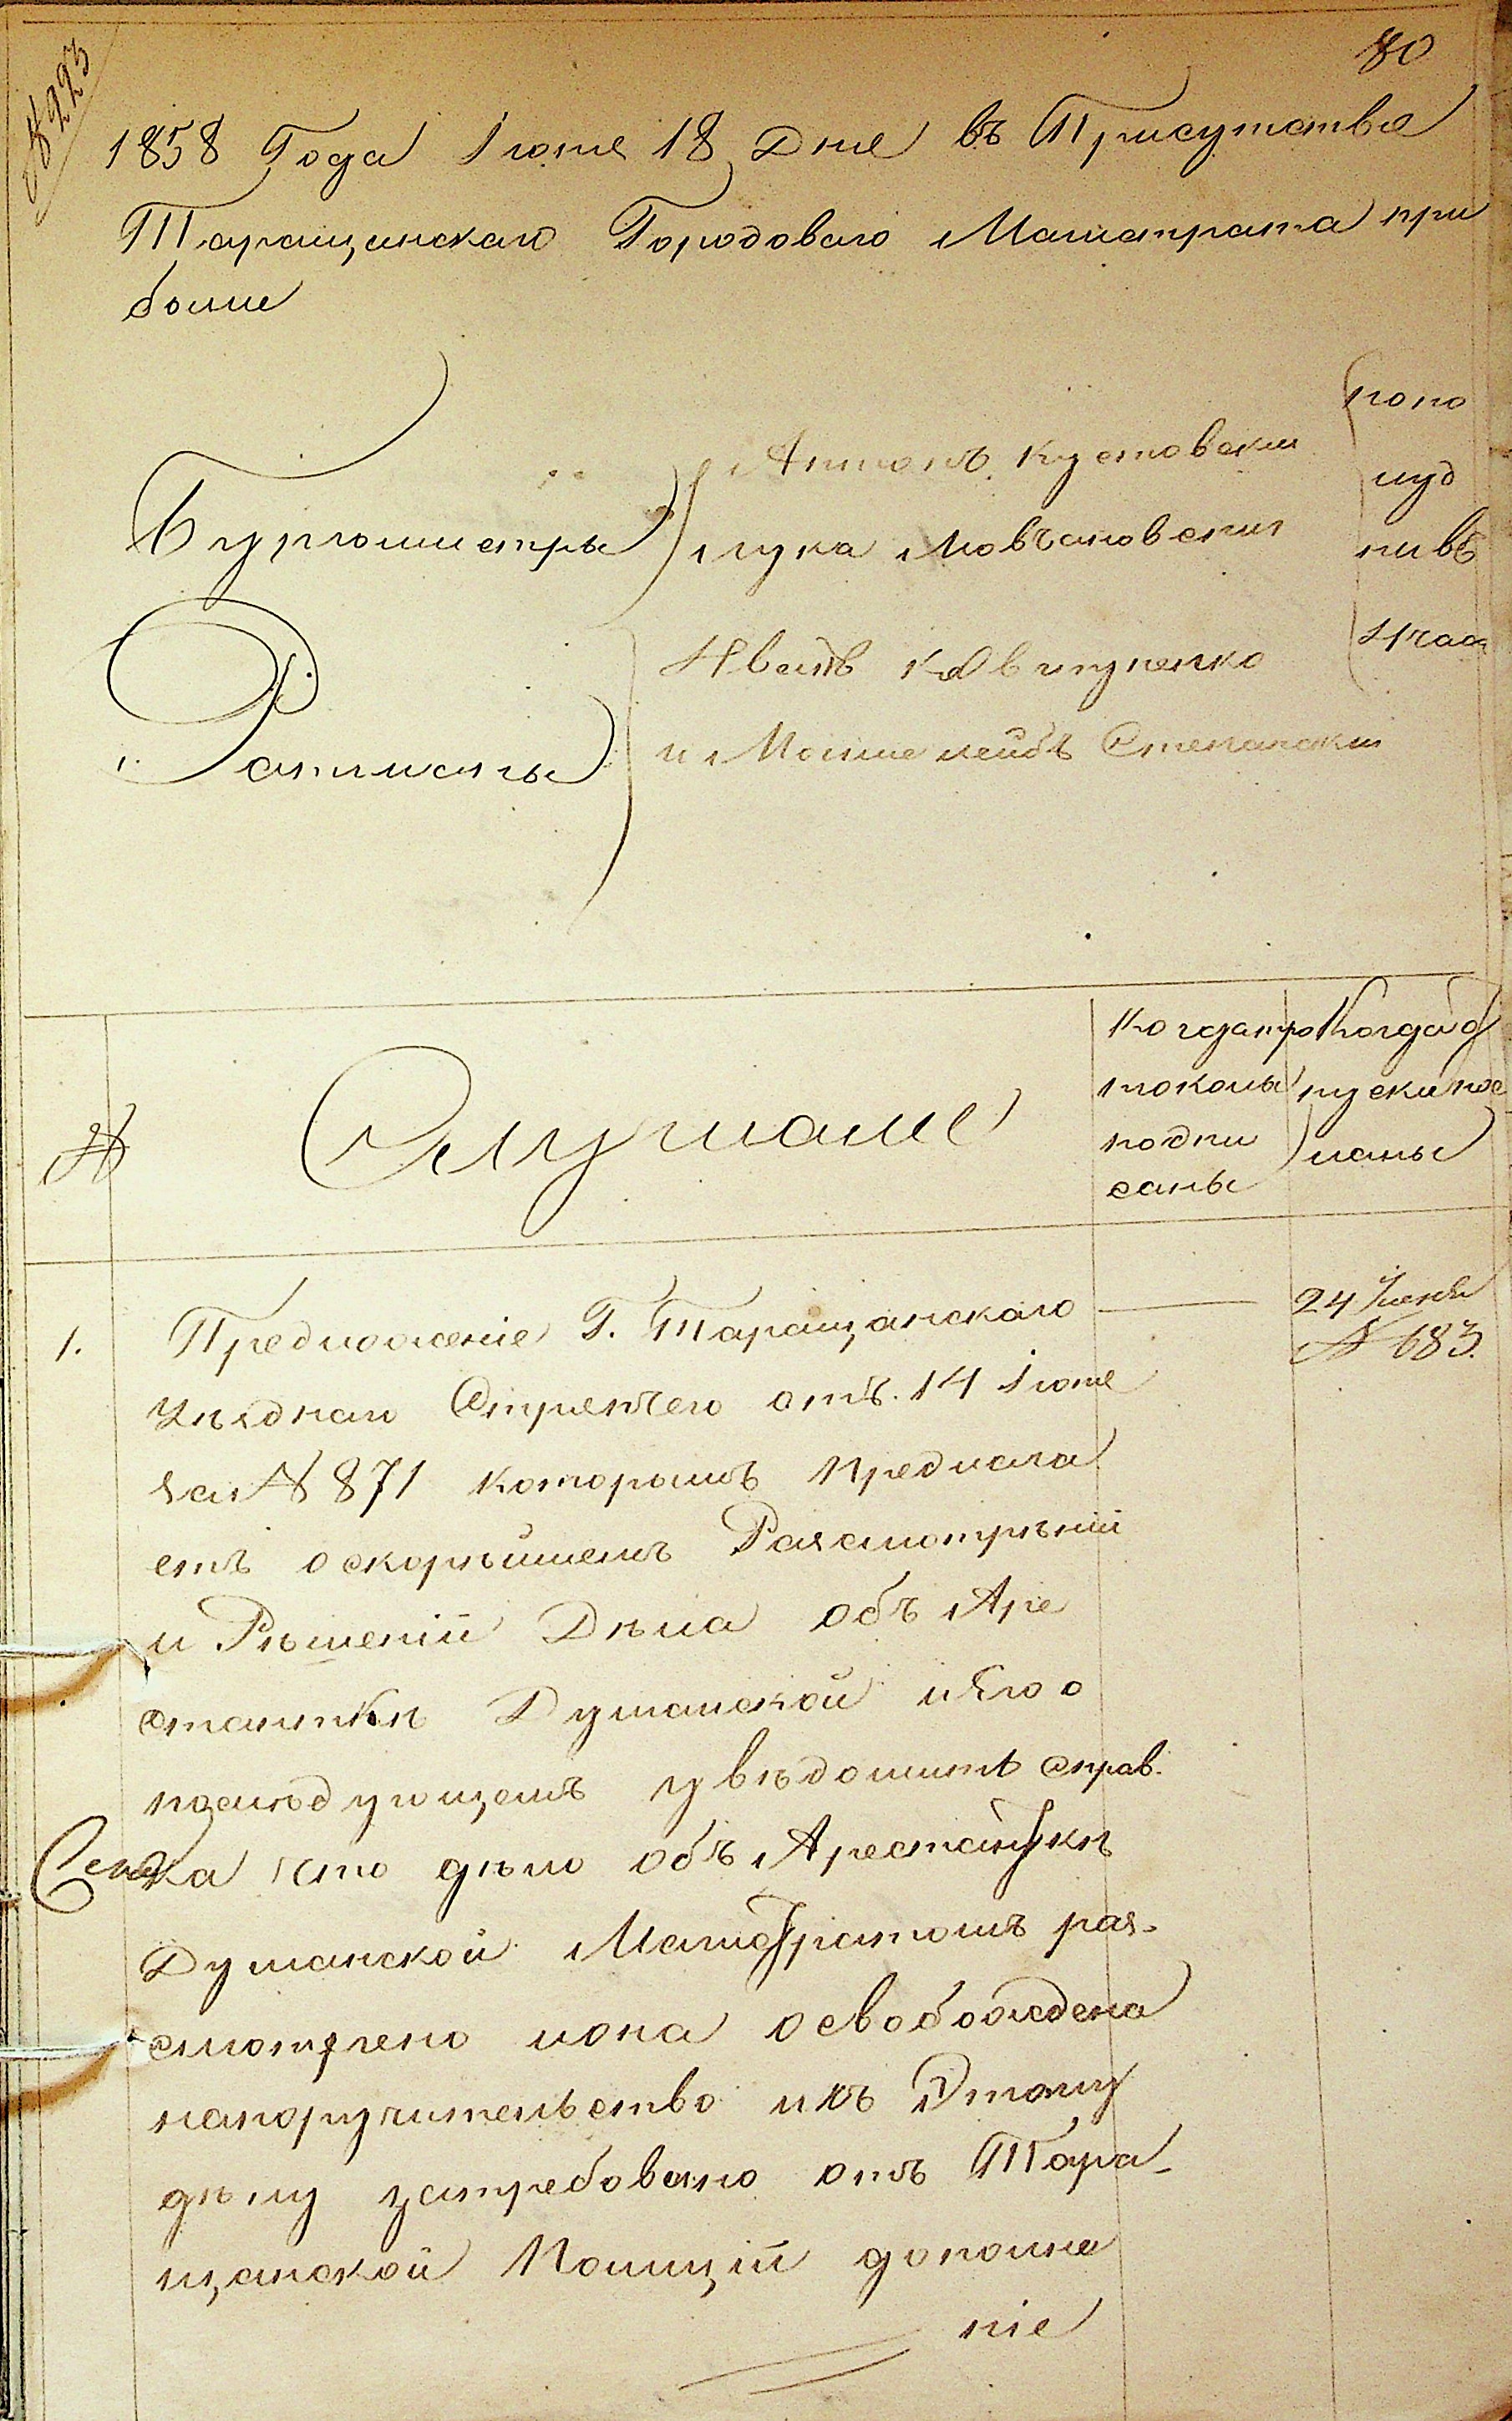 80
№ 223
1858 Года Июня 18 Дня въ Присутствіе
Таращанскаго Городоваго Магистрата при
были
Бургомистры
Антонъ Кустовскій
Лука Мовчановскій
попо
луд
ни въ
Ратманы
Иванъ Квитученко
и Мошко Лейбъ Степанскій
№
Слушали
Когда про
токолы
подпи
саны
Когда от
пуски пос
ланы
1.
Предложеніе Г. Таращанскаго
Уѣзднаго Стряпчего отъ 14 Июня
за № 871 которымъ предлага
етъ о скорѣйшемъ Разсмотрѣніи
и Рѣшеніи Дѣла объ Аре
станткѣ Думанской и его о
послѣдующемъ увѣдомить справ.
ка что дѣло объ Арестанткѣ
Думанской Магистратомъ раз-
смотрено и она освобождена
на поручительство и къ Этому
дѣлу затребовано отъ Тара-
щанской Полиціи дополне
ніе
24 Июня
№ 683.